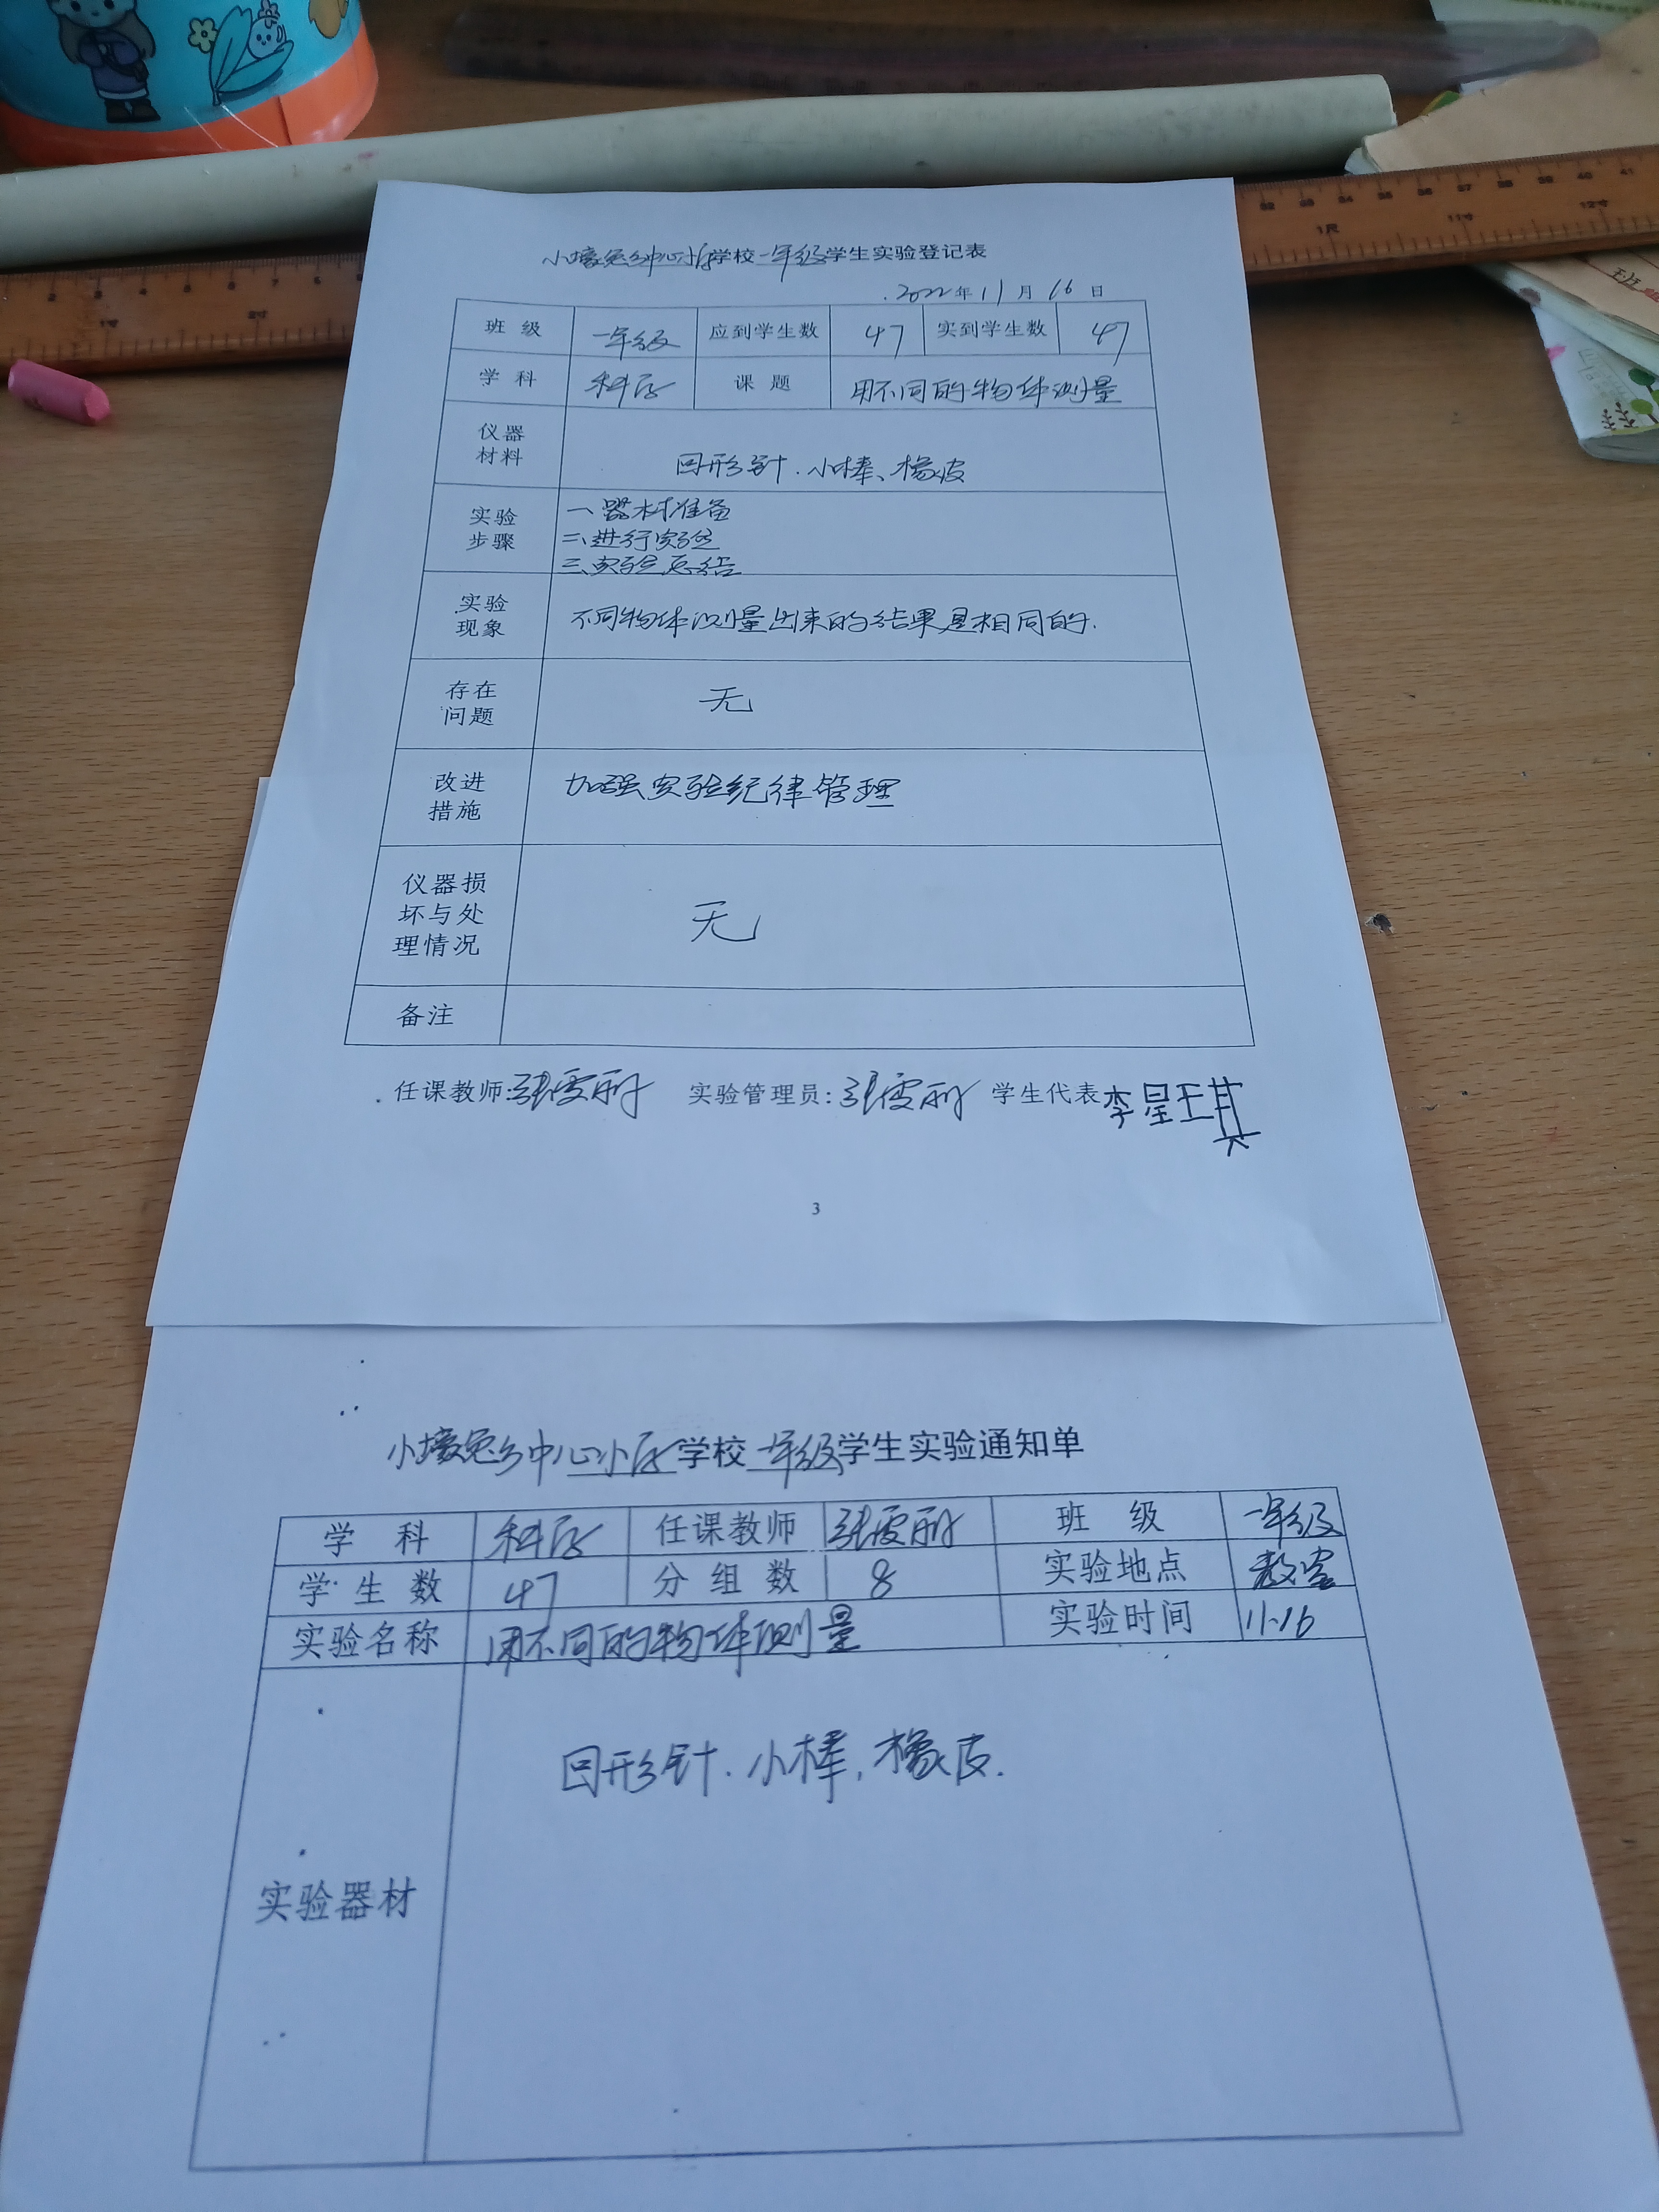 小壕兔乡中心小学学校一年级学生实验登记表
2022年11月16日
班级 一年级 应到学生数 47 实到学生数 47
学科 科学 课题 用不同的物体测量
仪器材料 回形针.小棒、橡皮
实验步骤 一、器材准备
二、进行实验
三、实验总结
实验现象 不同物体测量出来的结果是相同的.
存在问题 无
改进措施 加强实验纪律管理
仪器损坏与处理情况 无
备注
任课教师:张雯丽 实验管理员:张雯丽 学生代表 李星琪
3
小壕兔乡中心小学学校一年级学生实验通知单
学科 科学 任课教师 张雯丽 班级 一年级
学生数 47 分组数 8 实验地点 教室
实验名称 用不同的物体测量 实验时间 11.16
实验器材 回形针.小棒,橡皮.